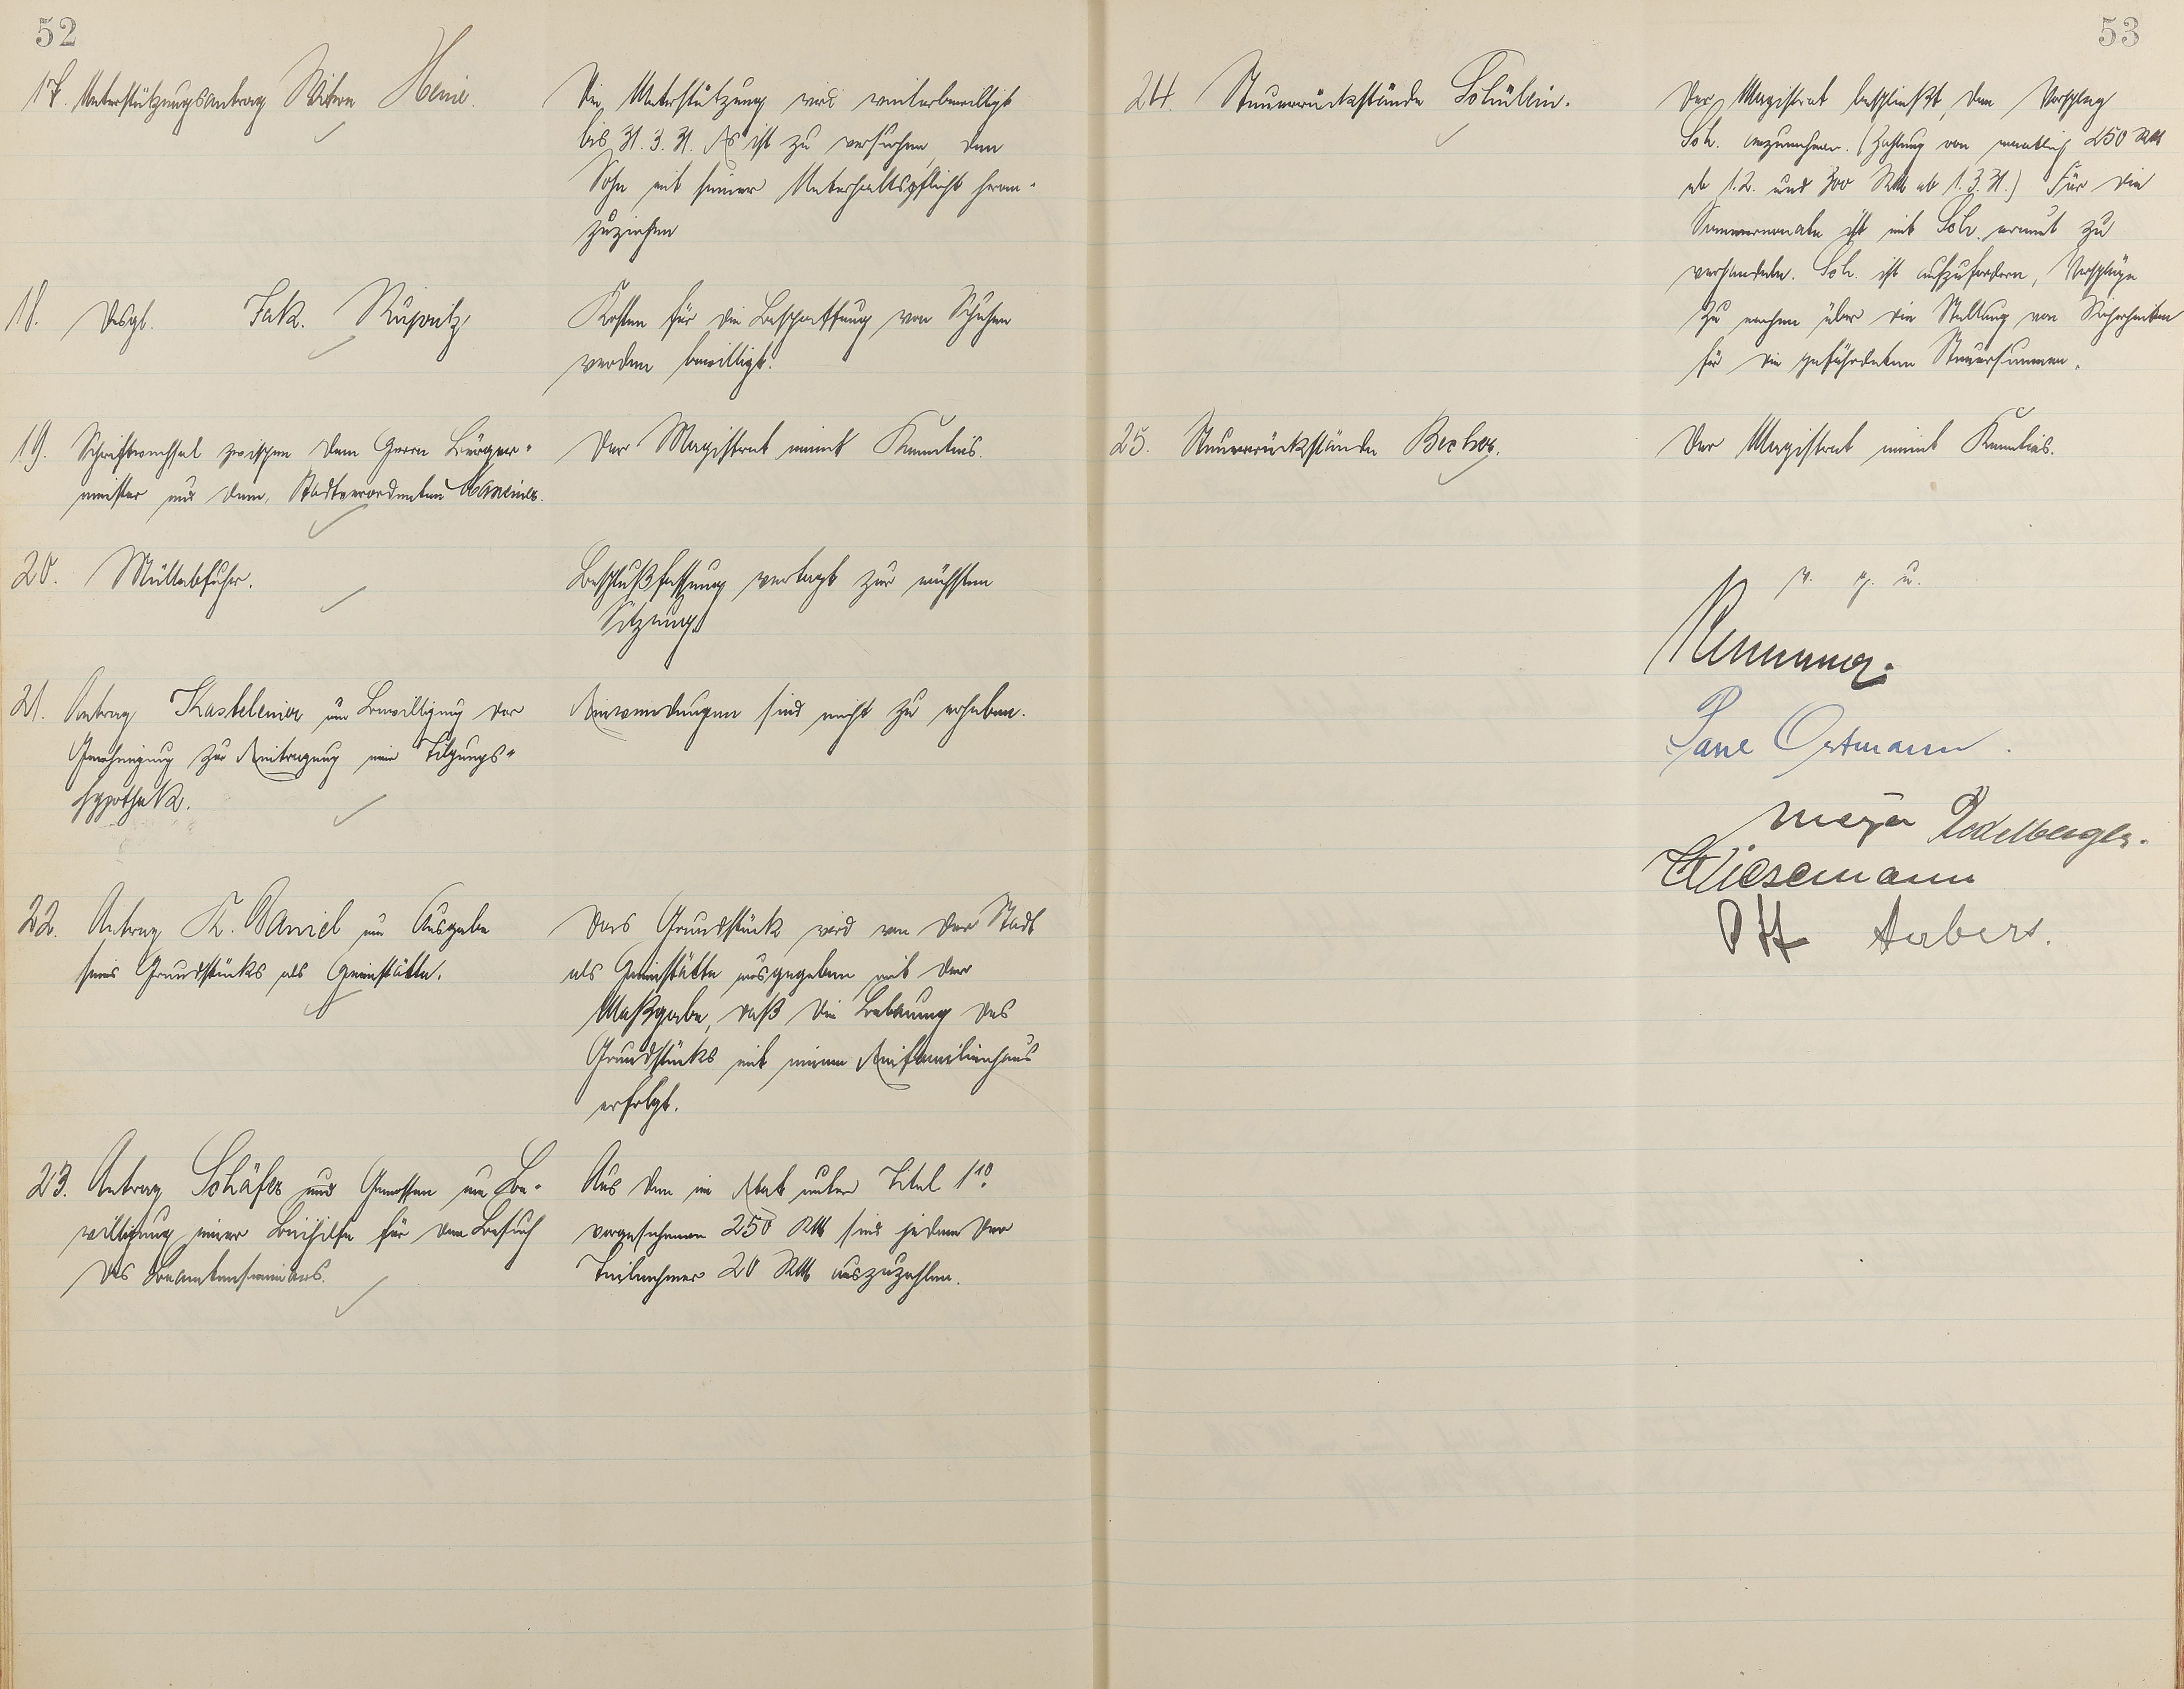 52
17. Unterstützungsantrag Witwe Heine.
Die Unterstützung wird weiterbewilligt
bis 31.3.31. Es ist zu versuchen, den
Sohn mit seiner Unterhaltspflicht heran-
zuziehen
18. Desgl. Jak.
Kosten für die Beschaffung von Schuhen
werden bewilligt.
19. Schriftwechsel zwischen dem Herrn Bürger-
meister und dem Stadtverordneten
Der Magistrat nimmt Kenntnis.
20. Müllabfuhr.
Beschlußfassung vertagt zur nächsten
Sitzung.
21. Antrag Kastelenior um Bewilligung der
Genehmigung zur Eintragung einer Tilgungs-
hypothek.
Einwendungen sind nicht zu erheben.
22. Antrag K. Daniel um Ausgabe
seines Grundstücks als Heimstätte.
Das Grundstück wird von der Stadt
als Heimstätte ausgegeben mit der
Maßgabe, daß die Bebauung des
Grundstücks mit einem Einfamilienhaus
erfolgt.
23. Antrag Schäfer und Genossen um Be-
willigung einer Beihilfe für den Besuch
des Beamtenseminars.
Aus den im Etat unter Titel 1
vorgesehenen 250 RM sind jedem der
Teilnehmer 20 RM auszuzahlen.
53
24. Steuerrückstände Schülein.
Der Magistrat beschließt, den Vorschlag
Sch. anzunehmen. (Zahlung von monatlich 250 RM
ab 1.2. und 300 RM ab 1.3.31.) Für die
Sommermonate ist mit Sch. erneut zu
verhandeln. Sch. ist aufzufordern, Vorschläge
zu machen über die Stellung von Sicherheiten
für die gefährdeten Steuersummen.
25. Steuerrückstände Becker.
Der Magistrat nimmt Kenntnis.
v. g. u.
Ortmann.
Meyer
Wiesemann
Ott